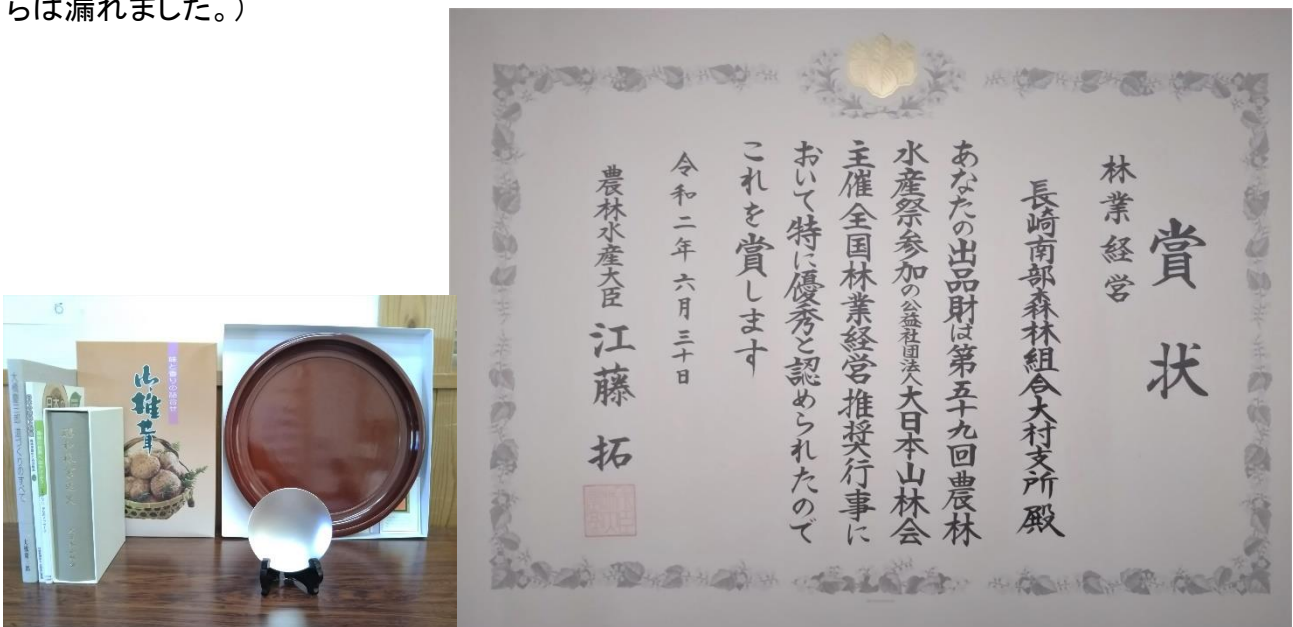 らは漏れました。）
賞状
林業経営
長崎南部森林組合大村支所 殿
あなたの出品財は第五十九回農林
水産祭参加の公益社団法人大日本山林会
主催全国林業経営推奨行事に
おいて特に優秀と認められたので
これを賞します
令和二年六月三十日
農林水産大臣 江藤 拓
味と香りの詰合せ
山椎茸
道づくりのすべて